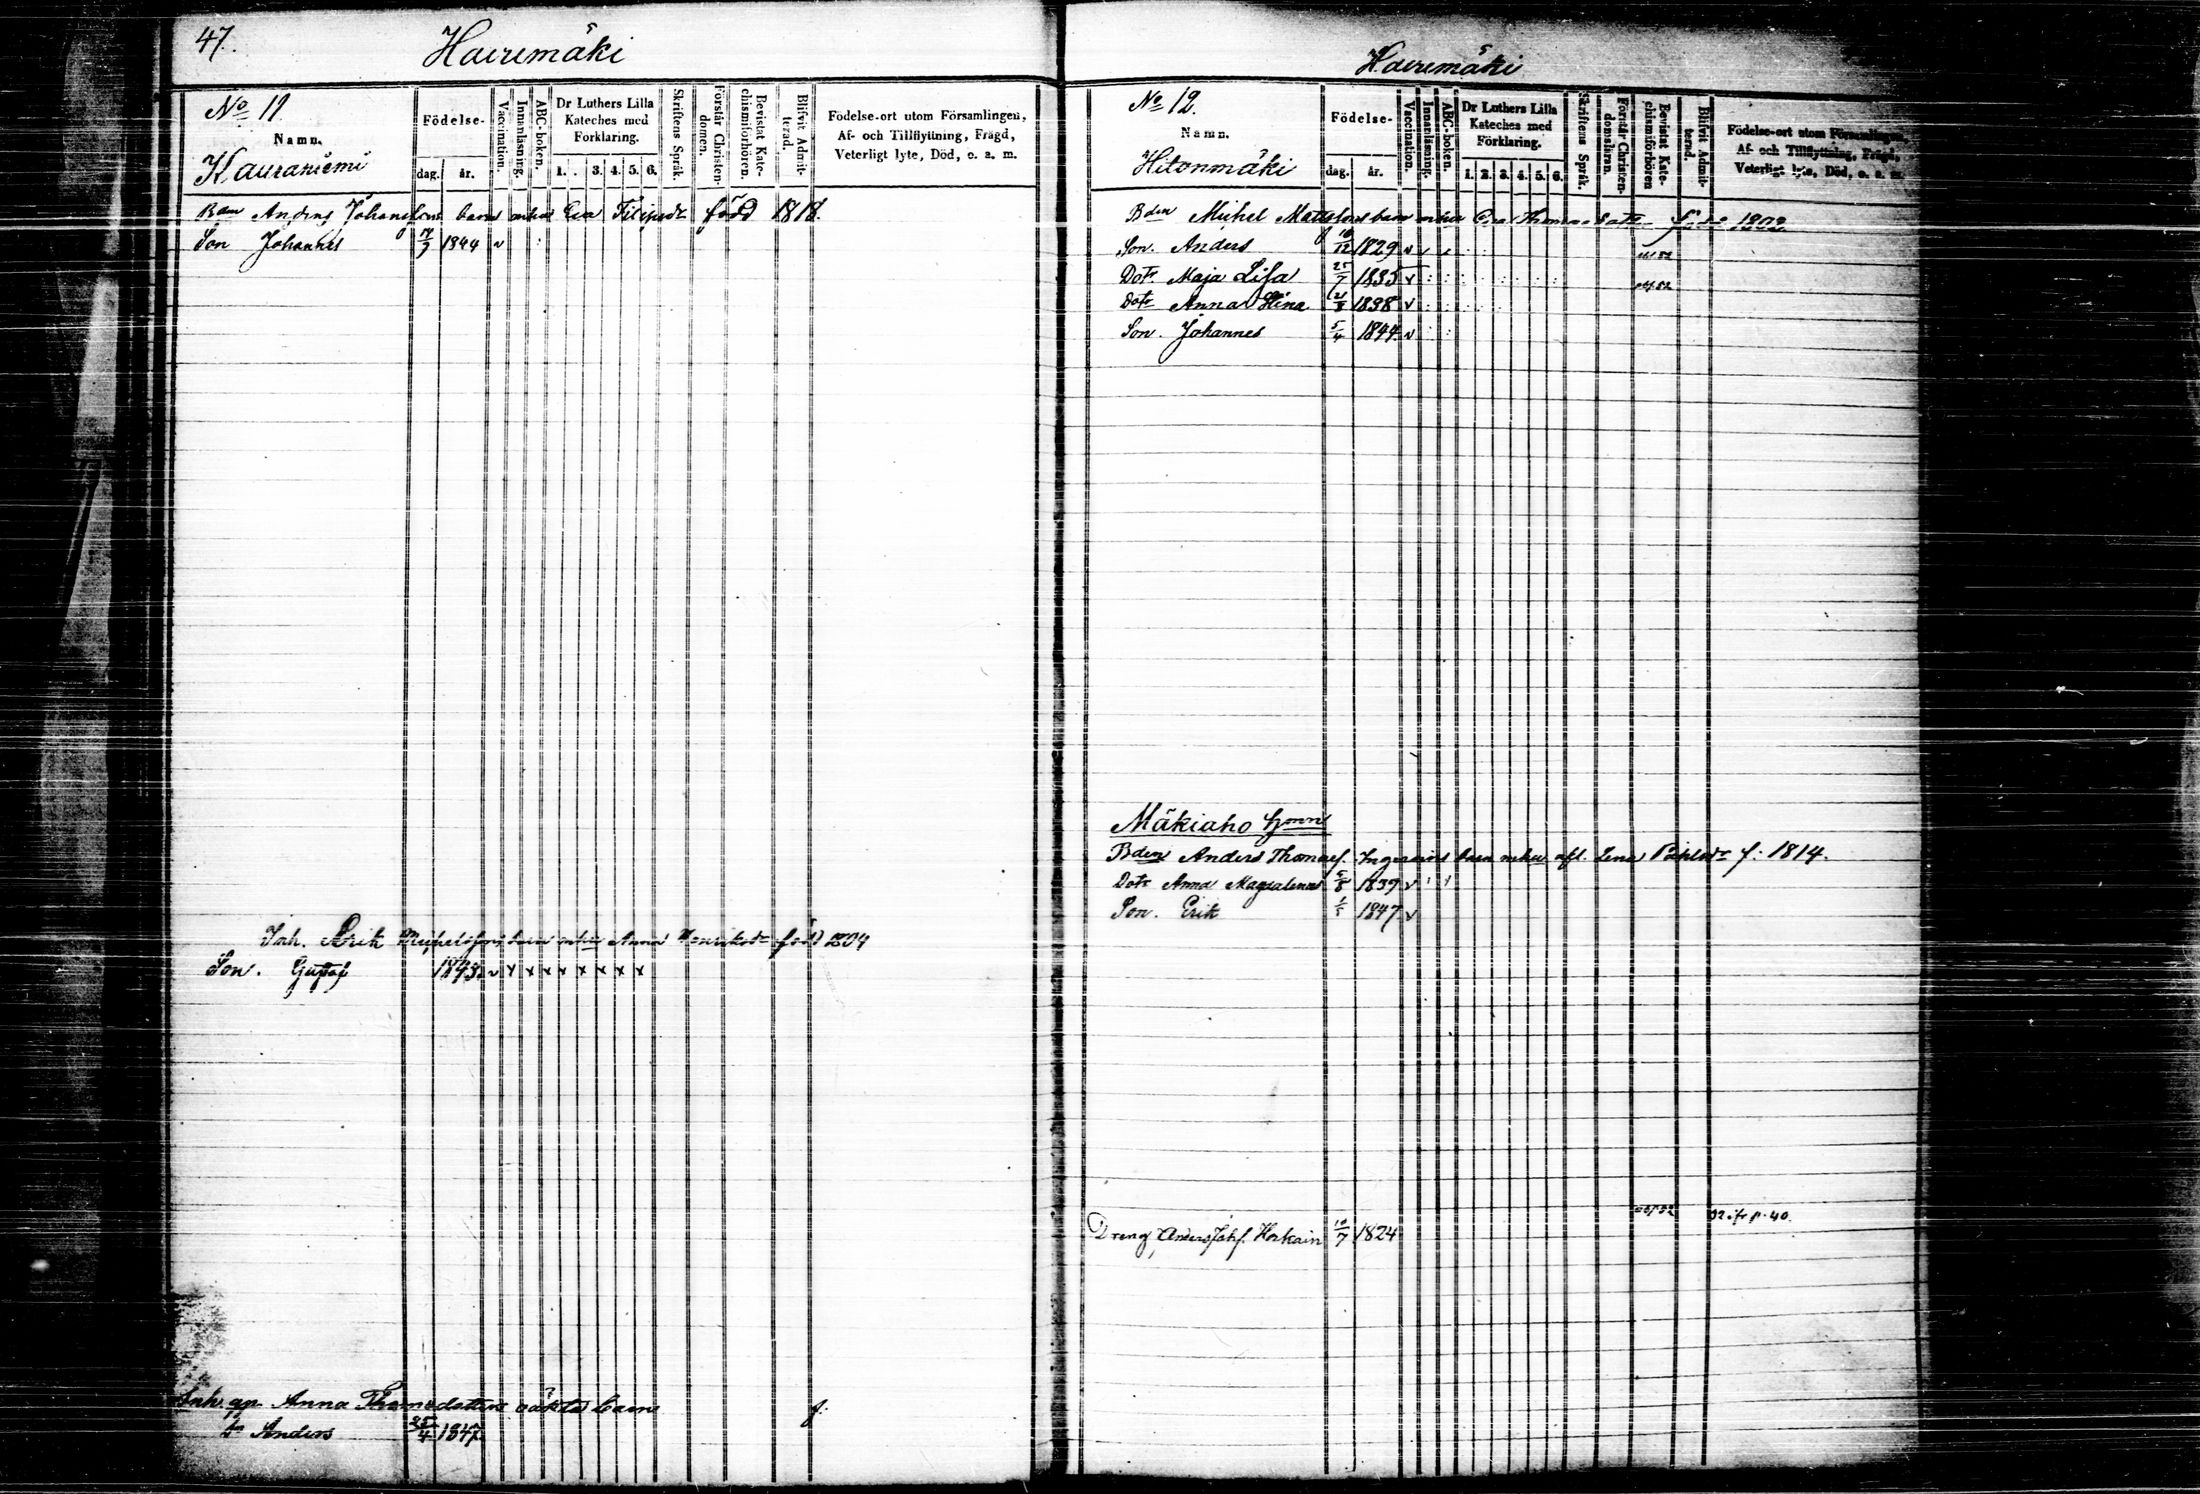 47.
Haeremäki
No 11
Namn.
Kauraniemi
Födelse-
dag. år.
Vaccination.
Innanläsning.
ABC-boken.
Dr Luthers Lilla
Kateches med
Förklaring.
1. . 3. 4. 5. 6.
Skriftens Språk.
Förstår Christen-
domen.
Bevistat Kate-
chismiförhören.
Blifvit Admit-
terad.
Födelse-ort utom Församlingen,
Af- och Tillflyttning, Frägd,
Veterligt lyte, Död, o. a. m.
Anders Johansons barn Eva Filipsdr född 1818.
Son Johannes 1844 v
Inh. Erik Michelsons barn Anna Henriksdr född 1804
Son. Gustaf 1843. v x x x x x x x x
Inh. Anna Thomsdotters oäkta barn f.
Anders 25/4 1847.
Haeremäki
No 12.
Namn.
Hitonmäki
Födelse-
dag. år.
Vaccination.
Innanläsning.
ABC-boken.
Dr Luthers Lilla
Kateches med
Förklaring.
1. 2. 3. 4. 5. 6.
Skriftens Språk.
Förstår Christen-
domsläran.
Bevistat Kate-
chismiförhören
Blifvit Admit-
terad.
Födelse-ort utom Församlingen,
Af- och Tillflyttning, Frägd,
Veterligt lyte, Död, o. a. m.
Bden Michel Mattsons barn Thomasdotr 1802
Son. Anders 1829 v
Dotr Maja Lisa 25/7 1835 v
Dotr Anna Stina 1838 v
Son. Johannes 5/4 1844. v
Mäkiaho
Bden Anders Thomass. barn Lena f. 1814.
Dotr Anna Magdalena 5/8 1839 v
Son. Erik 1/5 1847 v
Dreng Anders Johs. 10/7 1824 p. 40.